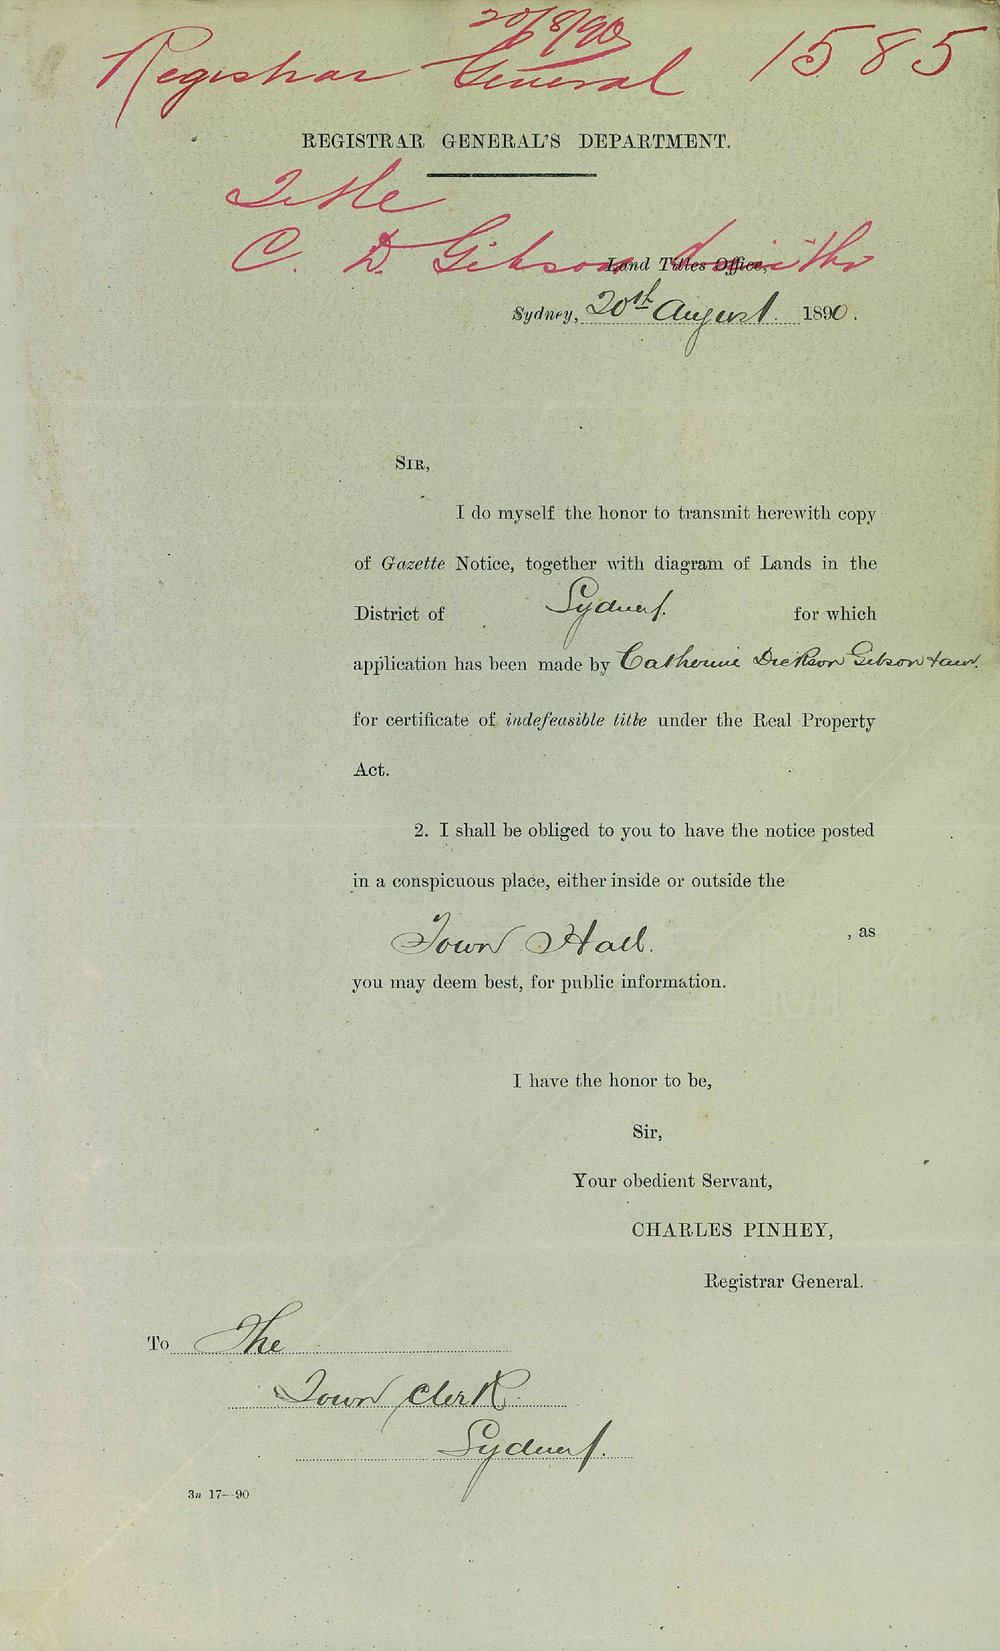 20/8/90
Registrar General 1585
REGISTRAR GENERAL'S DEPARTMENT.
Title
C. D. Gibson
Land Titles Office,
Sydney, 20th August. 1890.
SIR,
I do myself the honor to transmit herewith copy
of Gazette Notice, together with diagram of Lands in the
District of Sydney. for which
application has been made by Catherine Dickson Gibson
for certificate of indefeasible title under the Real Property
Act.
2. I shall be obliged to you to have the notice posted
in a conspicuous place, either inside or outside the
Town Hall. , as
you may deem best, for public information.
I have the honor to be,
Sir,
Your obedient Servant,
CHARLES PINHEY,
Registrar General.
To The
Town Clerk
Sydney.
3n 17--90